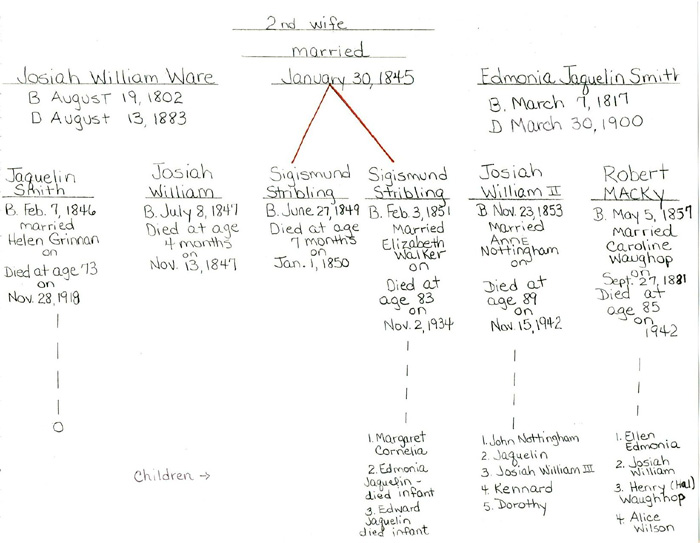 2nd wife
married
Josiah William Ware
January 30, 1845
Edmonia Jaquelin Smith
B August 19, 1802
D August 13, 1883
B. March 7, 1817
D March 30, 1900
Jaquelin
Smith
B. Feb. 7, 1846
married
Helen Grinnan
on
Died at age 73
on
Nov. 28, 1918
Josiah
William
B. July 8, 1847
Died at age
4 months
on
Nov. 13, 1847
Sigismund
Stribling
B. June 27, 1849
Died at age
7 months
on
Jan. 1, 1850
Sigismund
Stribling
B. Feb. 3, 1851
Married
Elizabeth
Walker
on
Died at
age 83
on
Nov. 2, 1934
Josiah
William II
B Nov. 23, 1853
Married
Anne
Nottingham
on
Died at
age 89
on
Nov. 15, 1942
Robert
MACKy
B. May 5, 1857
Married
Caroline
Waughop
on
Sept. 27, 1881
Died at
age 85
on
1942
O
Children →
1. Margaret
Cornelia
2. Edmonia
Jaquelin -
died infant
3. Edward
Jaquelin
died infant
1. John Nottingham
2. Jaquelin
3. Josiah William III
4. Kennard
5. Dorothy
1. Ellen
Edmonia
2. Josiah
William
3. Henry (Hal)
Waughhop
4. Alice
Wilson